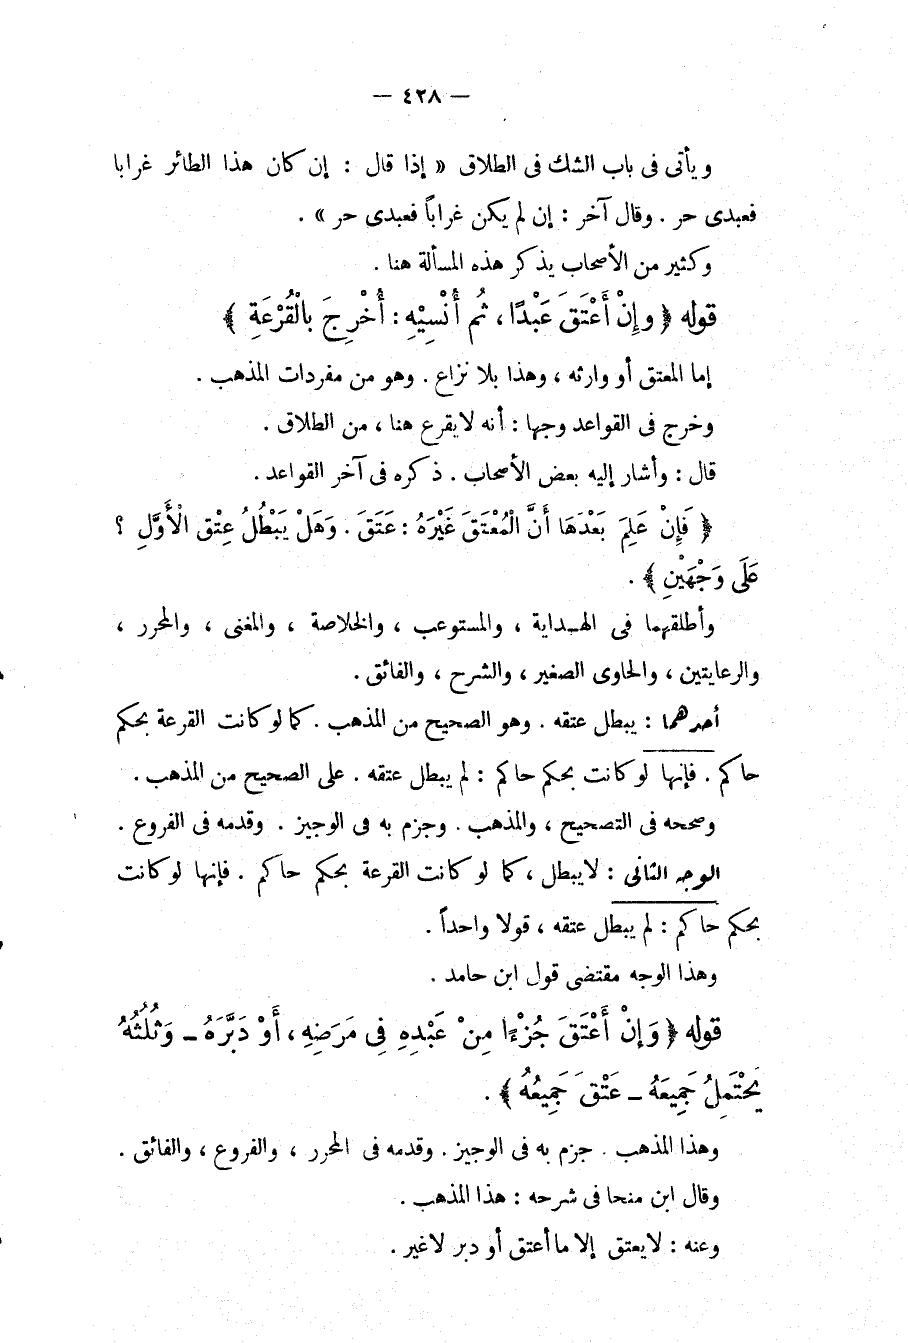 — ٤٢٨ —
ويأتى فى باب الشك فى الطلاق « إذا قال : إن كان هذا الطائر غرابا
فعبدى حر . وقال آخر : إن لم يكن غراباً فعبدى حر » .
وكثير من الأصحاب يذكر هذه المسألة هنا .
قوله ﴿ وإِنْ أَعْتَقَ عَبْدًا ، ثُم أُنْسِيْهِ : أُخْرِجَ بالْقُرْعَةِ ﴾
إما المعتق أو وارثه ، وهذا بلا نزاع . وهو من مفردات المذهب .
وخرج فى القواعد وجها : أنه لايقرع هنا ، من الطلاق .
قال : وأشار إليه بعض الأصحاب . ذكره فى آخر القواعد .
﴿ فَإِنْ عَلِمَ بَعْدَهَا أَنَّ الْمُعْتَقَ غَيْرَهُ : عَتَقَ . وَهَلْ يَبْطُلُ عِتْق الْأَوَّلِ ؟
عَلَى وَجْهَيْنِ ﴾ .
وأطلقهما فى الهـداية ، والمستوعب ، والخلاصة ، والمغنى ، والمحرر ،
والرعايتين ، والحاوى الصغير ، والشرح ، والفائق .
أحدهما : يبطل عتقه . وهو الصحيح من المذهب . كما لو كانت القرعة بحكم
حاكم . فإنها لو كانت بحكم حاكم : لم يبطل عتقه . على الصحيح من المذهب .
وصححه فى التصحيح ، والمذهب . وجزم به فى الوجيز . وقدمه فى الفروع .
الوجه الثانى : لايبطل ، كما لو كانت القرعة بحكم حاكم . فإنها لو كانت
بحكم حاكم : لم يبطل عتقه ، قولا واحداً .
وهذا الوجه مقتضى قول ابن حامد .
قوله ﴿ وَإِنْ أَعْتَقَ جُزْءًا مِنْ عَبْدِهِ فِى مَرَضِهِ ، أَوْ دَبَّرَهُ ـ وَثُلُثُهُ
يَحْتَمِلُ جَمِيعَهُ ـ عَتْقَ جَمِيعُهُ ﴾ .
وهذا المذهب . جزم به فى الوجيز . وقدمه فى المحرر ، والفروع ، والفائق .
وقال ابن منجا فى شرحه : هذا المذهب .
وعنه : لايعتق إلا ما أعتق أو دبر لاغير .